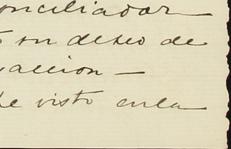 onciliador
su deseo de
accion —
he visto en la